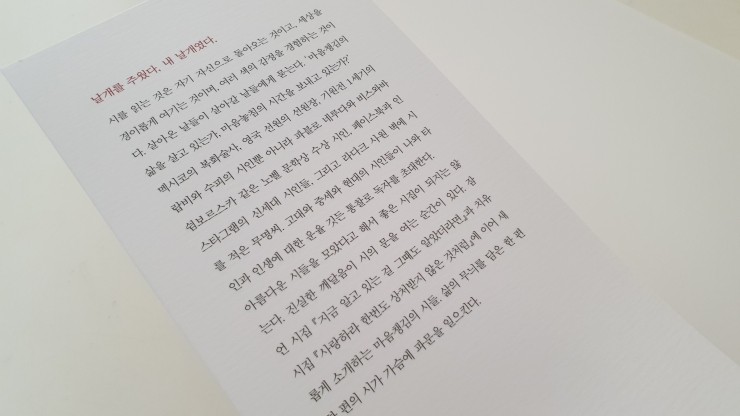 날개를 주웠다. 내 날개였다.
시를 읽는 것은 자기 자신으로 돌아오는 것이고, 세상을
경이롭게 여기는 것이며, 여러 색의 감정을 경험하는 것이
다. 살아온 날들이 살아갈 날들에게 묻는다. '마음챙김의
삶을 살고 있는가, 마음놓침의 시간을 보내고 있는가?'
멕시코의 복화술사, 영국 선원의 선원장, 기원전 1세기의
랍비와 수피의 시인뿐 아니라 파블로 네루다와 비스와바
쉼보르스카 같은 노벨 문학상 수상 시인, 페이스북과 인
스타그램의 신세대 시인들, 그리고 라다크 사원 벽에 시
를 적은 무명씨. 고대와 중세와 현대의 시인들이 나와 타
인과 인생에 대한 운율 깃든 통찰로 독자를 초대한다.
아름다운 시들을 모았다고 해서 좋은 시집이 되지는 않
는다. 진실한 깨달음이 시의 문을 여는 순간이 있다. 잠
언 시집 『지금 알고 있는 걸 그때도 알았더라면』과 치유
시집 『사랑하라 한번도 상처받지 않은 것처럼』에 이어 새
롭게 소개하는 마음챙김의 시들. 삶의 무늬를 담은 한 편
한 편의 시가 가슴에 파문을 일으킨다.